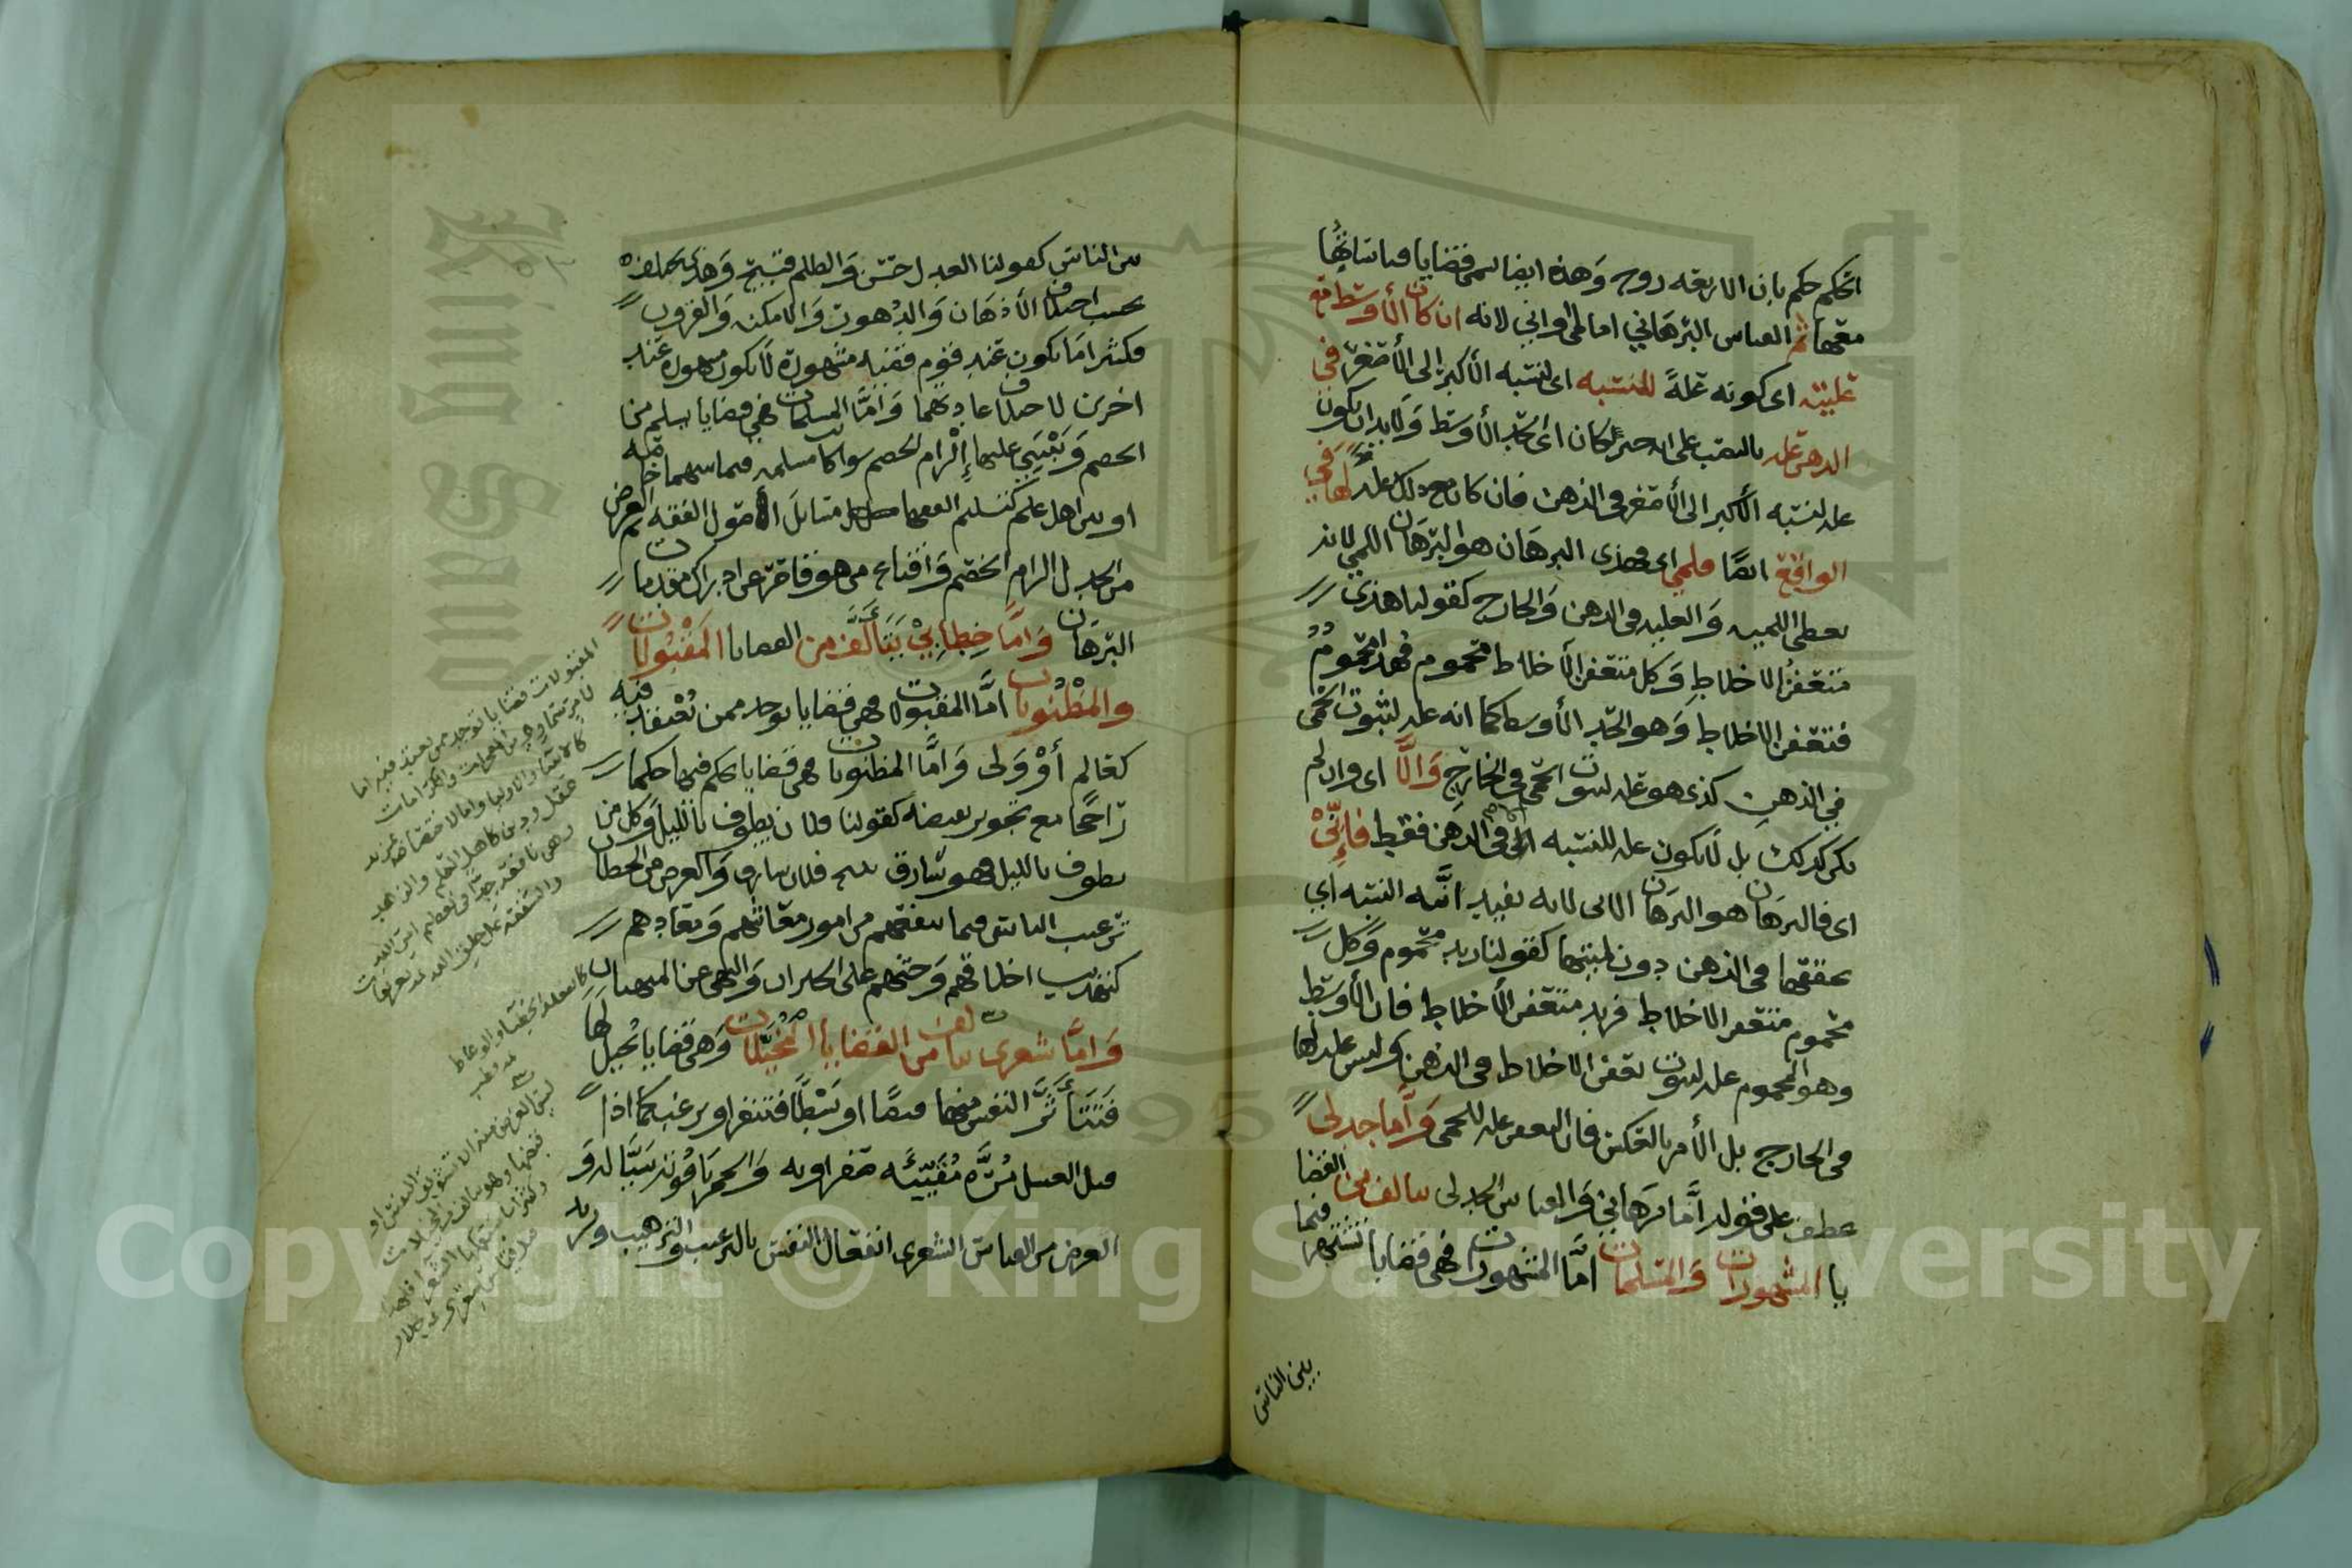 الحكم حكم بان الاربعة زوج وهذه ايضا تسمى قضايا قياساتها
معها ثم القياس البرهاني اما لمي او اني لانه ان كان الأوسط مع
علييته اى كونه علةً للنسبه اى لنسبه الأكبر إلى الأصغر في
الذهن علة بالنصب على انه خبر لكان اى الحد الأوسط ولابد ان يكون
علة لنسبه الأكبر الى الأصغر في الذهن فان كان مع ذلك علة لها في
الواقع ايضًا فلمي اى فهذى البرهان هو البرهان اللمي لانه
يعطى اللمية والعلية في الذهن والخارج كقولنا هذى
متعفن الاخلاط وكل متعفن الأخلاط محموم فهذا محموم
فتعفن الاخلاط وهو الحد الأوسط كما انه علة لثبوت الحمى
في الذهن كذى هو علة لثبوت الحمى في الخارج والّا اى وان لم
يكن كذلك بل لا يكون علة للنسبه الا في الذهن فقط فإنّيْ
اى فالبرهان هو البرهان الاني لانه يفيد انّية النسبه اي
تحققها في الذهن دون لميتها كقولنا زيد محموم وكل
محموم متعفن الاخلاط فزيد متعفن الأخلاط فان الأوسط
وهو المحموم علة لثبوت تعفن الاخلاط في الذهن وليس علة لها
في الخارج بل الأمر بالعكس فان التعفن علة للحمى وأما جدلى
عطف على قوله أمّا برهاني والقياس الجدلى يتالف من القضا
يا المشهورات والمسلمات امّا المشهورات فهي قضايا تشتهر فيما
بين الناس
بين الناس كقولنا العدل حسن والظلم قبيح وهذه مختلفه
بحسب اختلاف الأذهان والدهور والامكنه والقرون
فكثيرا ما يكون عند قوم قضيه مشهورة لا يكون مشهورة عند
اخرين لاختلاف عاداتهما وامّا المسلمات فهي قضايا يسلم من
الخصم ويُبْنَى عليها إلزام الخصم سواء كانت مسلمه فيما بينهما خاصه
او بين اهل علم كتسليم الفقهاء مسائل الأصول الفقه ثم الغرض
من الجدل الزام الخصم واقناع من هو قاصر عن ادراك مقدمات
البرهان وامّا خِطابيْ يَتَألّف من القضايا المقبولات
والمظنونات امّا المقبولات فهي قضايا توخد ممن يُعْتقد فيه
كعالم أوْ وَلى وامّا المظنونات فهي قضايا يحكم فيها حكما
راجحًا مع تجويز نقيضه كقولنا فلان يطوف بالليل وكل من
يطوف بالليل فهو سارق ينتج فلان سارق والغرض من الخطابه
ترغيب الناس فيما ينفعهم من امور معاشهم ومعادهم
كتهذيب اخلاقهم وحثهم على الخيرات والنهي عن المنهيات
وامّا شعرى يتالف من القضايا المُخَيّلات وهي قضايا تخيل لها
فَتَتَأثَّر النفس منها قبضًا او بَسْطًا فتنفر او ترغب كما اذا
قيل العسل مُرَّة مُقَيِّئَه صفراويه والخمر ياقوتة سيّالة و
الغرض من القياس الشعرى انفعال النفس بالترغيب والترهيب
المقبولات قضايا توخد ممن يعتقد فيه اما
لامر سماوي من المعجزات والكرامات
كالانبياء والاولياء واما لاختصاصه بمزيد
عقل ودين كاهل العلم والزهد
وهي نافعة جدا في تعظيم امر الله
والشفقة على خلق الله